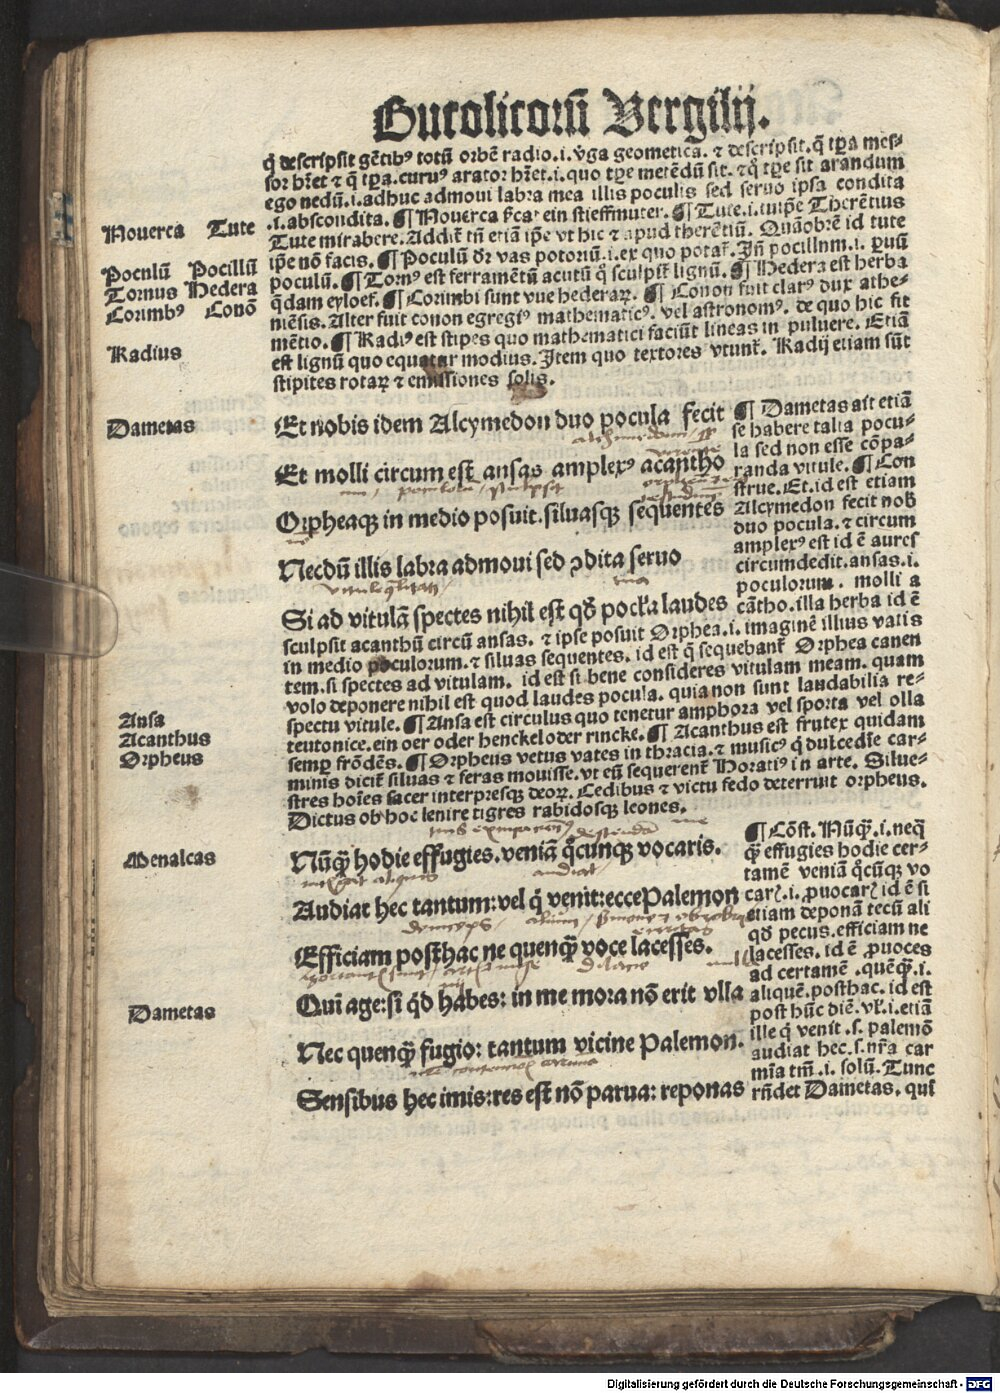 Bucolicorū Vergilij.
q̄ descripsit gētibꝰ totū orbē radio. i. v̄ga geometica. ⁊ descripsit. q̄ tp̄a mes-
sor hr̄et ⁊ q̄ tp̄a. curuꝰ arator hr̄et. i. quo tp̄e metēdū sit. ⁊ q̄ tp̄e sit arandum
ego nedū. i. adhuc admoui labra mea illis poculis sed seruo ipsa condita
.i. abscondita. ¶ Nouerca ein stieffmuter. ¶ Tute. i. tuip̄e Therētius
Tute mirabere. Addit̄ tn̄ etiā ip̄e vt hic ⁊ apud therētiū. Quāobrē id tute
ip̄e nō facis. ¶ Poculū dr̄ vas potoriū. i. ex quo potat̄. Jn̄ pocillnm. i. ꝑuū
poculū. ¶ Tornꝰ est ferramētū acutū q̄ sculpit̄ lignū. ¶ Hedera est herba
q̄dam eyloef. ¶ Corimbi sunt vue hederaꝝ. ¶ Conon fuit clarꝰ dux athe-
niēsis. Alter fuit conon egregiꝰ mathematicꝰ. vel astronomꝰ. de quo hic fit
mētio. ¶ Radiꝰ est stipes quo mathematici faciūt lineas in puluere. Etiā
est lignū quo equatur modius. Jtem quo textores vtunt̄. Radij etiam sūt
stipites rotaꝝ ⁊ emissiones solis.
Nouerca Tute
Pocnlū Pocillū
Tornus Hedera
Corimbꝰ Conō
Radius
Dametas
Et nobis idem Alcymedon duo pocula fecit
Et molli circum est ansas amplexꝰ acantho
Orpheaqꝫ in medio posuit. siluasqꝫ sequentes
Necdū illis labra admoui sed ꝯdita seruo
Si ad vitulā spectes nihil est qd̄ pocl̄a laudes
¶ Dametas ait etiā
se habere talia pocu-
la sed non esse cōpa-
randa vitule. ¶ Con
strue. Et. id est etiam
Alcymedon fecit nob̄
duo pocula. ⁊ circum
amplexꝰ est id ē aures
circumdedit. ansas. i.
poculorum. molli a
cātho. illa herba id ē
sculpsit acanthū circū ansas. ⁊ ipse posuit Orphea. i. imaginē illius vatis
in medio poculorum. ⁊ siluas sequentes. id est q̄ sequebant̄ Orphea canen
tem. si spectes ad vitulam. id est si bene consideres vitulam meam. quam
volo deponere nihil est quod laudes pocula. quia non sunt laudabilia re-
spectu vitule. ¶ Ansa est circulus quo tenetur amphora vel sporta vel olla
teutonice. ein oer oder henckel oder rincke. ¶ Acanthus est frutex quidam
semꝑ frōdēs. ¶ Orpheus vetus vates in thracia. ⁊ musicꝰ q̄ dulcedīe car-
minis dicit̄ siluas ⁊ feras mouisse. vt eū sequerent̄ Horatiꝰ in arte. Silue-
stres hoīes sacer interpresqꝫ deoꝝ. Cedibus ⁊ victu fedo deterruit orpheus.
Dictus ob hoc lenire tigres rabidosqꝫ leones.
Ansa
Acanthus
Orpheus
Menalcas
Nūq̄ꝫ hodie effugies. veniā q̄cunqꝫ vocaris.
Audiat hec tantum: vel q̄ venit: ecce Palemon
Efficiam posthac ne quenq̄ꝫ voce lacesses.
Dametas
Qui age: si qd̄ habes: in me mora nō erit vlla
Nec quenq̄ꝫ fugio: tantum vicine Palemon.
Sensibus hec imis: res est nō parua: reponas
¶ Cōst. Nūq̄ꝫ. i. neq̄
q̄ꝫ effugies hodie cer-
tamē veniā q̄cūqꝫ vo
car̄. i. ꝓuocar̄ id ē si
etiam deponā tecū ali
qd̄ pecus. efficiam ne
lacesses. id ē ꝓuoces
ad certamē. quēq̄ꝫ. i.
aliquē. posthac. id est
post hūc diē. vl̄. i. etiā
ille q̄ venit. s. palemō
audiat hec. s. nr̄a car
mīa tm̄. i. solū. Tunc
rn̄det Dametas. qui
Digitalisierung gefördert durch die Deutsche Forschungsgemeinschaft - DFG